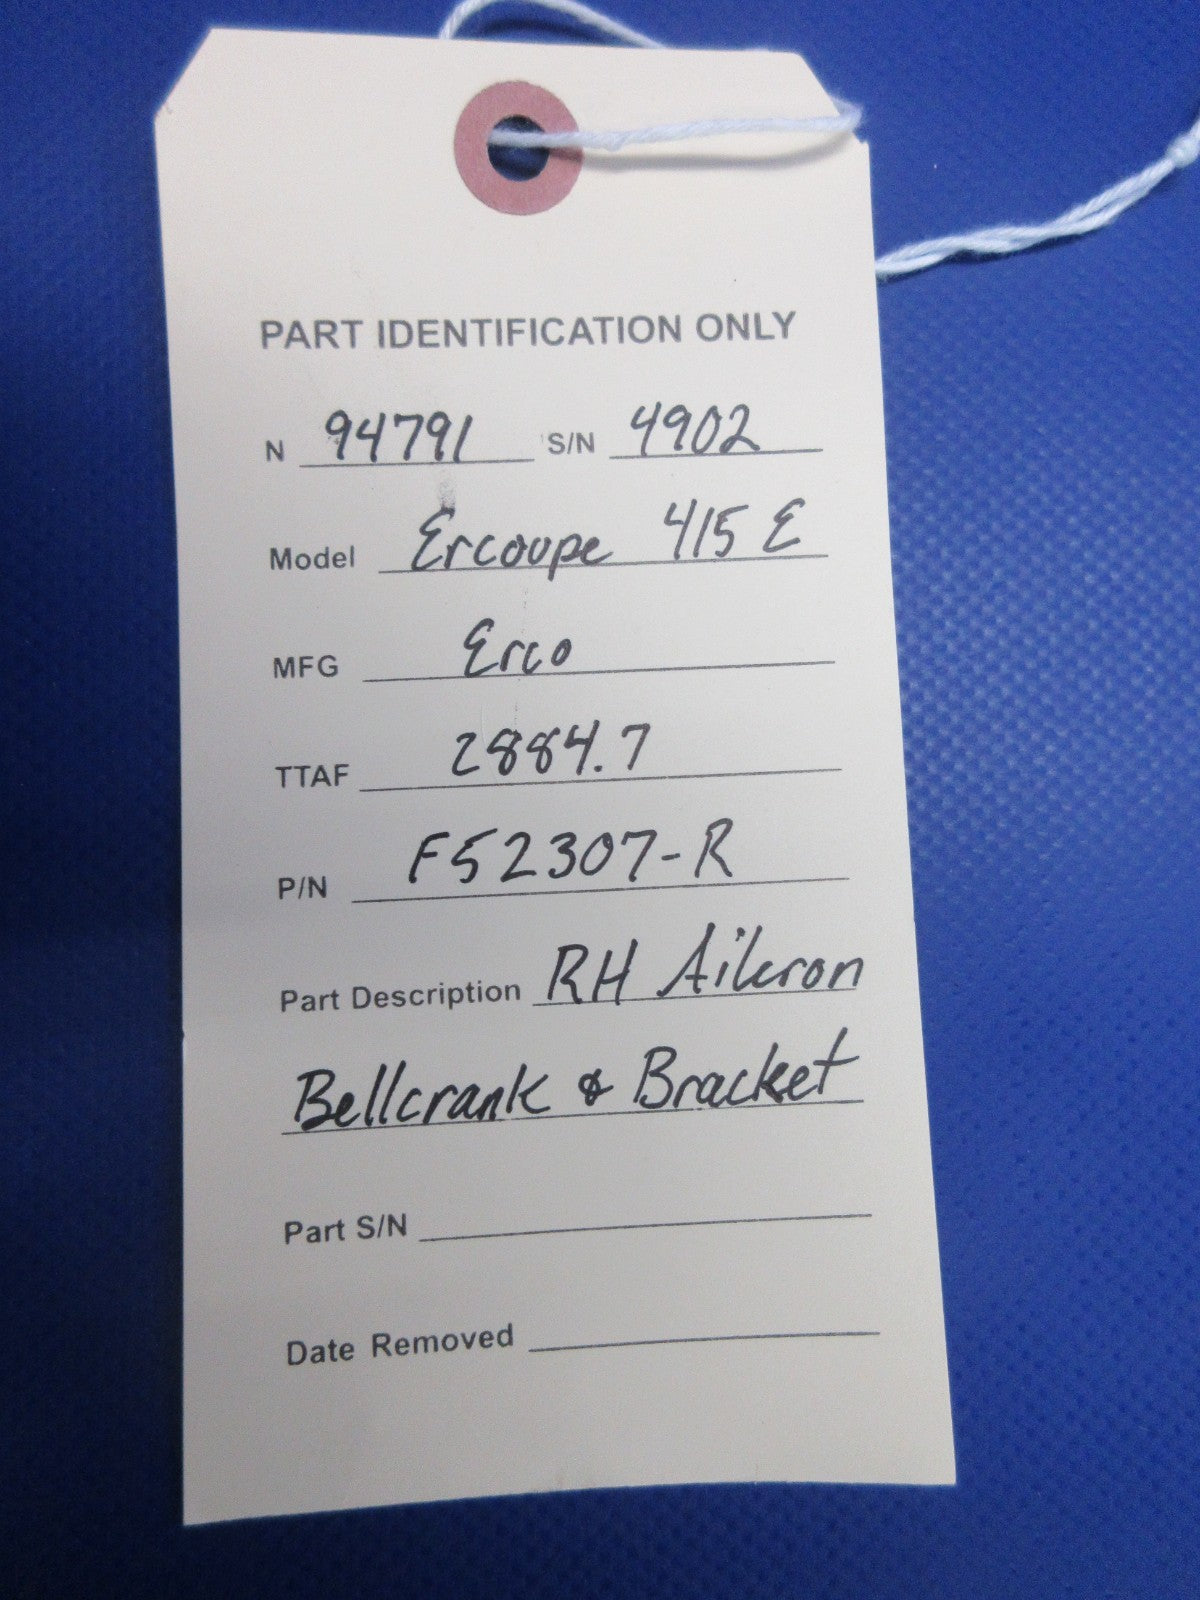 PART IDENTIFICATION ONLY
N 94791 S/N 4902
Model Ercoupe 415 E
MFG Erco
TTAF 2884.7
P/N F52307-R
Part Description RH Aileron
Bellcrank & Bracket
Part S/N
Date Removed